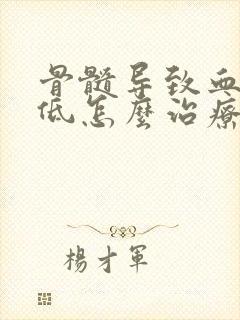 骨髓导致血
低怎麼治療
楊才軍